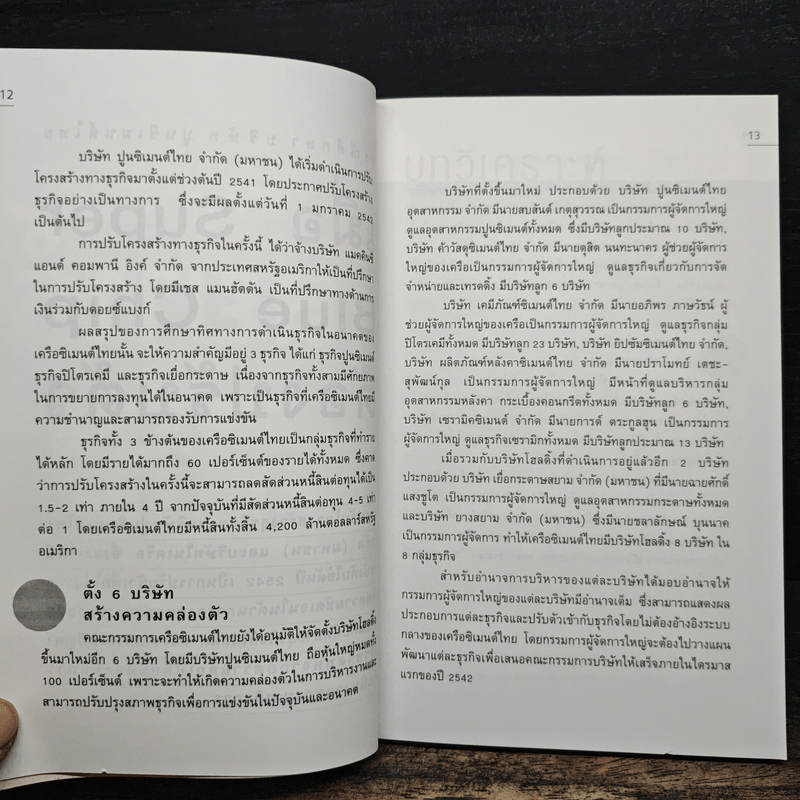 12
บริษัท ปูนซิเมนต์ไทย จำกัด (มหาชน) ได้เริ่มดำเนินการปรับ
โครงสร้างทางธุรกิจมาตั้งแต่ช่วงต้นปี 2541 โดยประกาศปรับโครงสร้าง
ธุรกิจอย่างเป็นทางการ ซึ่งจะมีผลตั้งแต่วันที่ 1 มกราคม 2542
เป็นต้นไป
การปรับโครงสร้างทางธุรกิจในครั้งนี้ ได้ว่าจ้างบริษัท แมคคินซี
แอนด์ คอมพานี อิงค์ จำกัด จากประเทศสหรัฐอเมริกาให้เป็นที่ปรึกษา
ในการปรับโครงสร้าง โดยมีเชส แมนฮัตตัน เป็นที่ปรึกษาทางด้านการ
เงินร่วมกับดอยซ์แบงก์
ผลสรุปของการศึกษาทิศทางการดำเนินธุรกิจในอนาคตของ
เครือซิเมนต์ไทยนั้น จะให้ความสำคัญมีอยู่ 3 ธุรกิจ ได้แก่ ธุรกิจปูนซิเมนต์
ธุรกิจปิโตรเคมี และธุรกิจเยื่อกระดาษ เนื่องจากธุรกิจทั้งสามมีศักยภาพ
ในการขยายการลงทุนได้ในอนาคต เพราะเป็นธุรกิจที่เครือซิเมนต์ไทยมี
ความชำนาญและสามารถรองรับการแข่งขัน
ธุรกิจทั้ง 3 ข้างต้นของเครือซิเมนต์ไทยเป็นกลุ่มธุรกิจที่ทำราย
ได้หลัก โดยมีรายได้มากถึง 60 เปอร์เซ็นต์ของรายได้ทั้งหมด ซึ่งคาด
ว่าการปรับโครงสร้างในครั้งนี้จะสามารถลดสัดส่วนหนี้สินต่อทุนได้เป็น
1.5-2 เท่า ภายใน 4 ปี จากปัจจุบันที่มีสัดส่วนหนี้สินต่อทุน 4-5 เท่า
ต่อ 1 โดยเครือซิเมนต์ไทยมีหนี้สินทั้งสิ้น 4,200 ล้านดอลลาร์สหรัฐ
อเมริกา
ตั้ง 6 บริษัท
สร้างความคล่องตัว
คณะกรรมการเครือซิเมนต์ไทยยังได้อนุมัติให้จัดตั้งบริษัทโฮลดิ้ง
ขึ้นมาใหม่อีก 6 บริษัท โดยมีบริษัทปูนซิเมนต์ไทย ถือหุ้นใหญ่หมดทั้ง
100 เปอร์เซ็นต์ เพราะจะทำให้เกิดความคล่องตัวในการบริหารงานและ
สามารถปรับปรุงสภาพธุรกิจเพื่อการแข่งขันในปัจจุบันและอนาคต
13
บริษัทที่ตั้งขึ้นมาใหม่ ประกอบด้วย บริษัท ปูนซิเมนต์ไทย
อุตสาหกรรม จำกัด มีนายสบสันต์ เกตุสุวรรณ เป็นกรรมการผู้จัดการใหญ่
ดูแลอุตสาหกรรมปูนซิเมนต์ทั้งหมด ซึ่งมีบริษัทลูกประมาณ 10 บริษัท,
บริษัท ค้าวัสดุซิเมนต์ไทย จำกัด มีนายดุสิต นนทะนาคร ผู้ช่วยผู้จัดการ
ใหญ่ของเครือเป็นกรรมการผู้จัดการใหญ่ ดูแลธุรกิจเกี่ยวกับการจัด
จำหน่ายและเทรดดิ้ง มีบริษัทลูก 6 บริษัท
บริษัท เคมีภัณฑ์ซิเมนต์ไทย จำกัด มีนายอภิพร ภาษวัธน์ ผู้
ช่วยผู้จัดการใหญ่ของเครือเป็นกรรมการผู้จัดการใหญ่ ดูแลธุรกิจกลุ่ม
ปิโตรเคมีทั้งหมด มีบริษัทลูก 23 บริษัท, บริษัท ยิปซัมซิเมนต์ไทย จำกัด,
บริษัท ผลิตภัณฑ์หลังคาซิเมนต์ไทย จำกัด มีนายปราโมทย์ เตชะ-
สุพัฒน์กุล เป็นกรรมการผู้จัดการใหญ่ มีหน้าที่ดูแลบริหารกลุ่ม
อุตสาหกรรมหลังคา กระเบื้องคอนกรีตทั้งหมด มีบริษัทลูก 6 บริษัท,
บริษัท เซรามิคซิเมนต์ จำกัด มีนายกานต์ ตระกูลฮุน เป็นกรรมการ
ผู้จัดการใหญ่ ดูแลธุรกิจเซรามิกทั้งหมด มีบริษัทลูกประมาณ 13 บริษัท
เมื่อรวมกับบริษัทโฮลดิ้งที่ดำเนินการอยู่แล้วอีก 2 บริษัท
ประกอบด้วย บริษัท เยื่อกระดาษสยาม จำกัด (มหาชน) ที่มีนายฉายศักดิ์
แสงชูโต เป็นกรรมการผู้จัดการใหญ่ ดูแลอุตสาหกรรมกระดาษทั้งหมด
และบริษัท ยางสยาม จำกัด (มหาชน) ซึ่งมีนายชลาลักษณ์ บุนนาค
เป็นกรรมการผู้จัดการ ทำให้เครือซิเมนต์ไทยมีบริษัทโฮลดิ้ง 8 บริษัท ใน
8 กลุ่มธุรกิจ
สำหรับอำนาจการบริหารของแต่ละบริษัทได้มอบอำนาจให้
กรรมการผู้จัดการใหญ่ของแต่ละบริษัทมีอำนาจเต็ม ซึ่งสามารถแสดงผล
ประกอบการแต่ละธุรกิจและปรับตัวเข้ากับธุรกิจโดยไม่ต้องอ้างอิงระบบ
กลางของเครือซิเมนต์ไทย โดยกรรมการผู้จัดการใหญ่จะต้องไปวางแผน
พัฒนาแต่ละธุรกิจเพื่อเสนอคณะกรรมการบริษัทให้เสร็จภายในไตรมาส
แรกของปี 2542